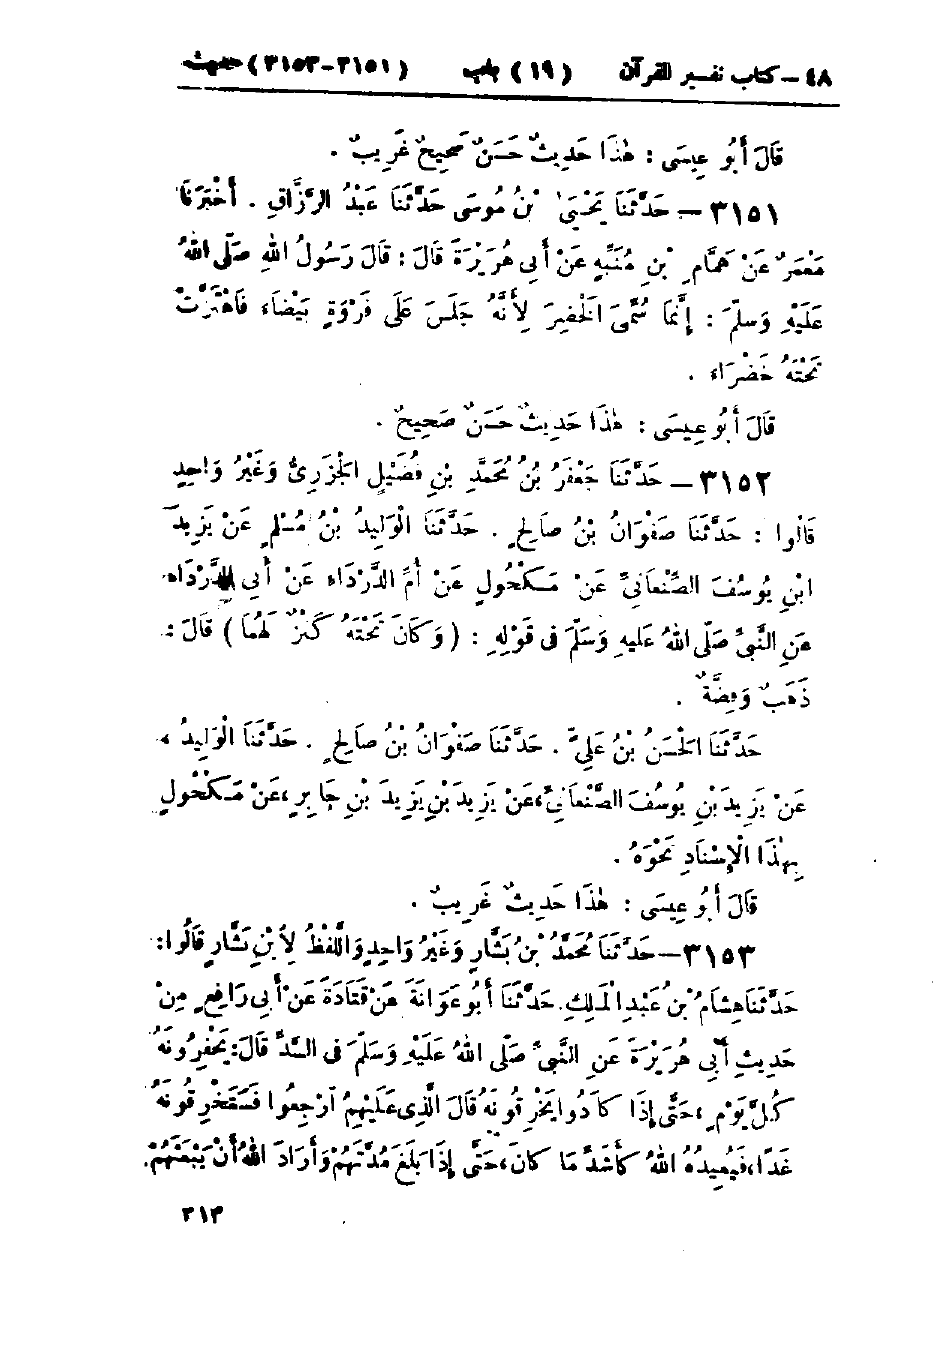 ٤٨ – كتاب تفسير القرآن (١٩) باب (٣١٥١-٣١٥٣) حديث
قَالَ أَبُو عِيسَى : هٰذَا حَدِيثٌ حَسَنٌ صَحِيحٌ غَرِيبٌ .
٣١٥١ – حَدَّثَنَا يَحْيَىٰ بْنُ مُوسَى حَدَّثَنَا عَبْدُ الرَّزَّاقِ . أَخْبَرَنَا
مَعْمَرٌ عَنْ هَمَّامِ بْنِ مُنَبِّهٍ عَنْ أَبِي هُرَيْرَةَ قَالَ : قَالَ رَسُولُ اللهِ صَلَّى اللهُ
عَلَيْهِ وَسَلَّمَ : إِنَّمَا سُمِّيَ الْخَضِرَ لِأَنَّهُ جَلَسَ عَلَى فَرْوَةٍ بَيْضَاءَ فَاهْتَزَّتْ
تَحْتَهُ خَضْرَاءَ .
قَالَ أَبُو عِيسَى : هٰذَا حَدِيثٌ حَسَنٌ صَحِيحٌ .
٣١٥٢ – حَدَّثَنَا جَعْفَرُ بْنُ مُحَمَّدِ بْنِ فُضَيْلٍ الْجَزَرِيُّ وَغَيْرُ وَاحِدٍ
قَالُوا : حَدَّثَنَا صَفْوَانُ بْنُ صَالِحٍ . حَدَّثَنَا الْوَلِيدُ بْنُ مُسْلِمٍ عَنْ يَزِيدَ
ابْنِ يُوسُفَ الصَّنْعَانِيِّ عَنْ مَكْحُولٍ عَنْ أُمِّ الدَّرْدَاءِ عَنْ أَبِي الدَّرْدَاءِ
عَنِ النَّبِيِّ صَلَّى اللهُ عَلَيهِ وَسَلَّمَ فِي قَوْلِهِ : (وَكَانَ تَحْتَهُ كَنْزٌ لَهُمَا) قَالَ :
ذَهَبٌ وَفِضَّةٌ .
حَدَّثَنَا الْحَسَنُ بْنُ عَلِيٍّ . حَدَّثَنَا صَفْوَانُ بْنُ صَالِحٍ . حَدَّثَنَا الْوَلِيدُ ،
عَنْ يَزِيدَ بْنِ يُوسُفَ الصَّنْعَانِيِّ، عَنْ يَزِيدَ بْنِ يَزِيدَ بْنِ جَابِرٍ، عَنْ مَكْحُولٍ
بِهٰذَا الْإِسْنَادِ نَحْوَهُ .
قَالَ أَبُو عِيسَى : هٰذَا حَدِيثٌ غَرِيبٌ .
٣١٥٣ – حَدَّثَنَا مُحَمَّدُ بْنُ بَشَّارٍ وَغَيْرُ وَاحِدٍ وَاللَّفْظُ لِأبْنِ بَشَّارٍ قَالُوا:
حَدَّثَنَا هِشَامُ بْنُ عَبْدِ الْمَلِكِ. حَدَّثَنَا أَبُو عَوَانَةَ عَنْ قَتَادَةَ عَنْ أَبِي رَافِعٍ مِنْ
حَدِيثِ أَبِي هُرَيْرَةَ عَنِ النَّبِيِّ صَلَّى اللهُ عَلَيْهِ وَسَلَّمَ فِي السَّدِّ قَالَ: يَحْفِرُونَهُ
كُلَّ يَوْمٍ، حَتَّى إِذَا كَادُوا يَخْرِقُونَهُ قَالَ الَّذِي عَلَيْهِمُ ارْجِعُوا فَسَتَخْرِقُونَهُ
غَدًا، فَيُعِيدُهُ اللهُ كَأَشَدِّ مَا كَانَ، حَتَّى إِذَا بَلَغَ مُدَّتَهُمْ وَأَرَادَ اللهُ أَنْ يَبْعَثَهُمْ
٣١٣